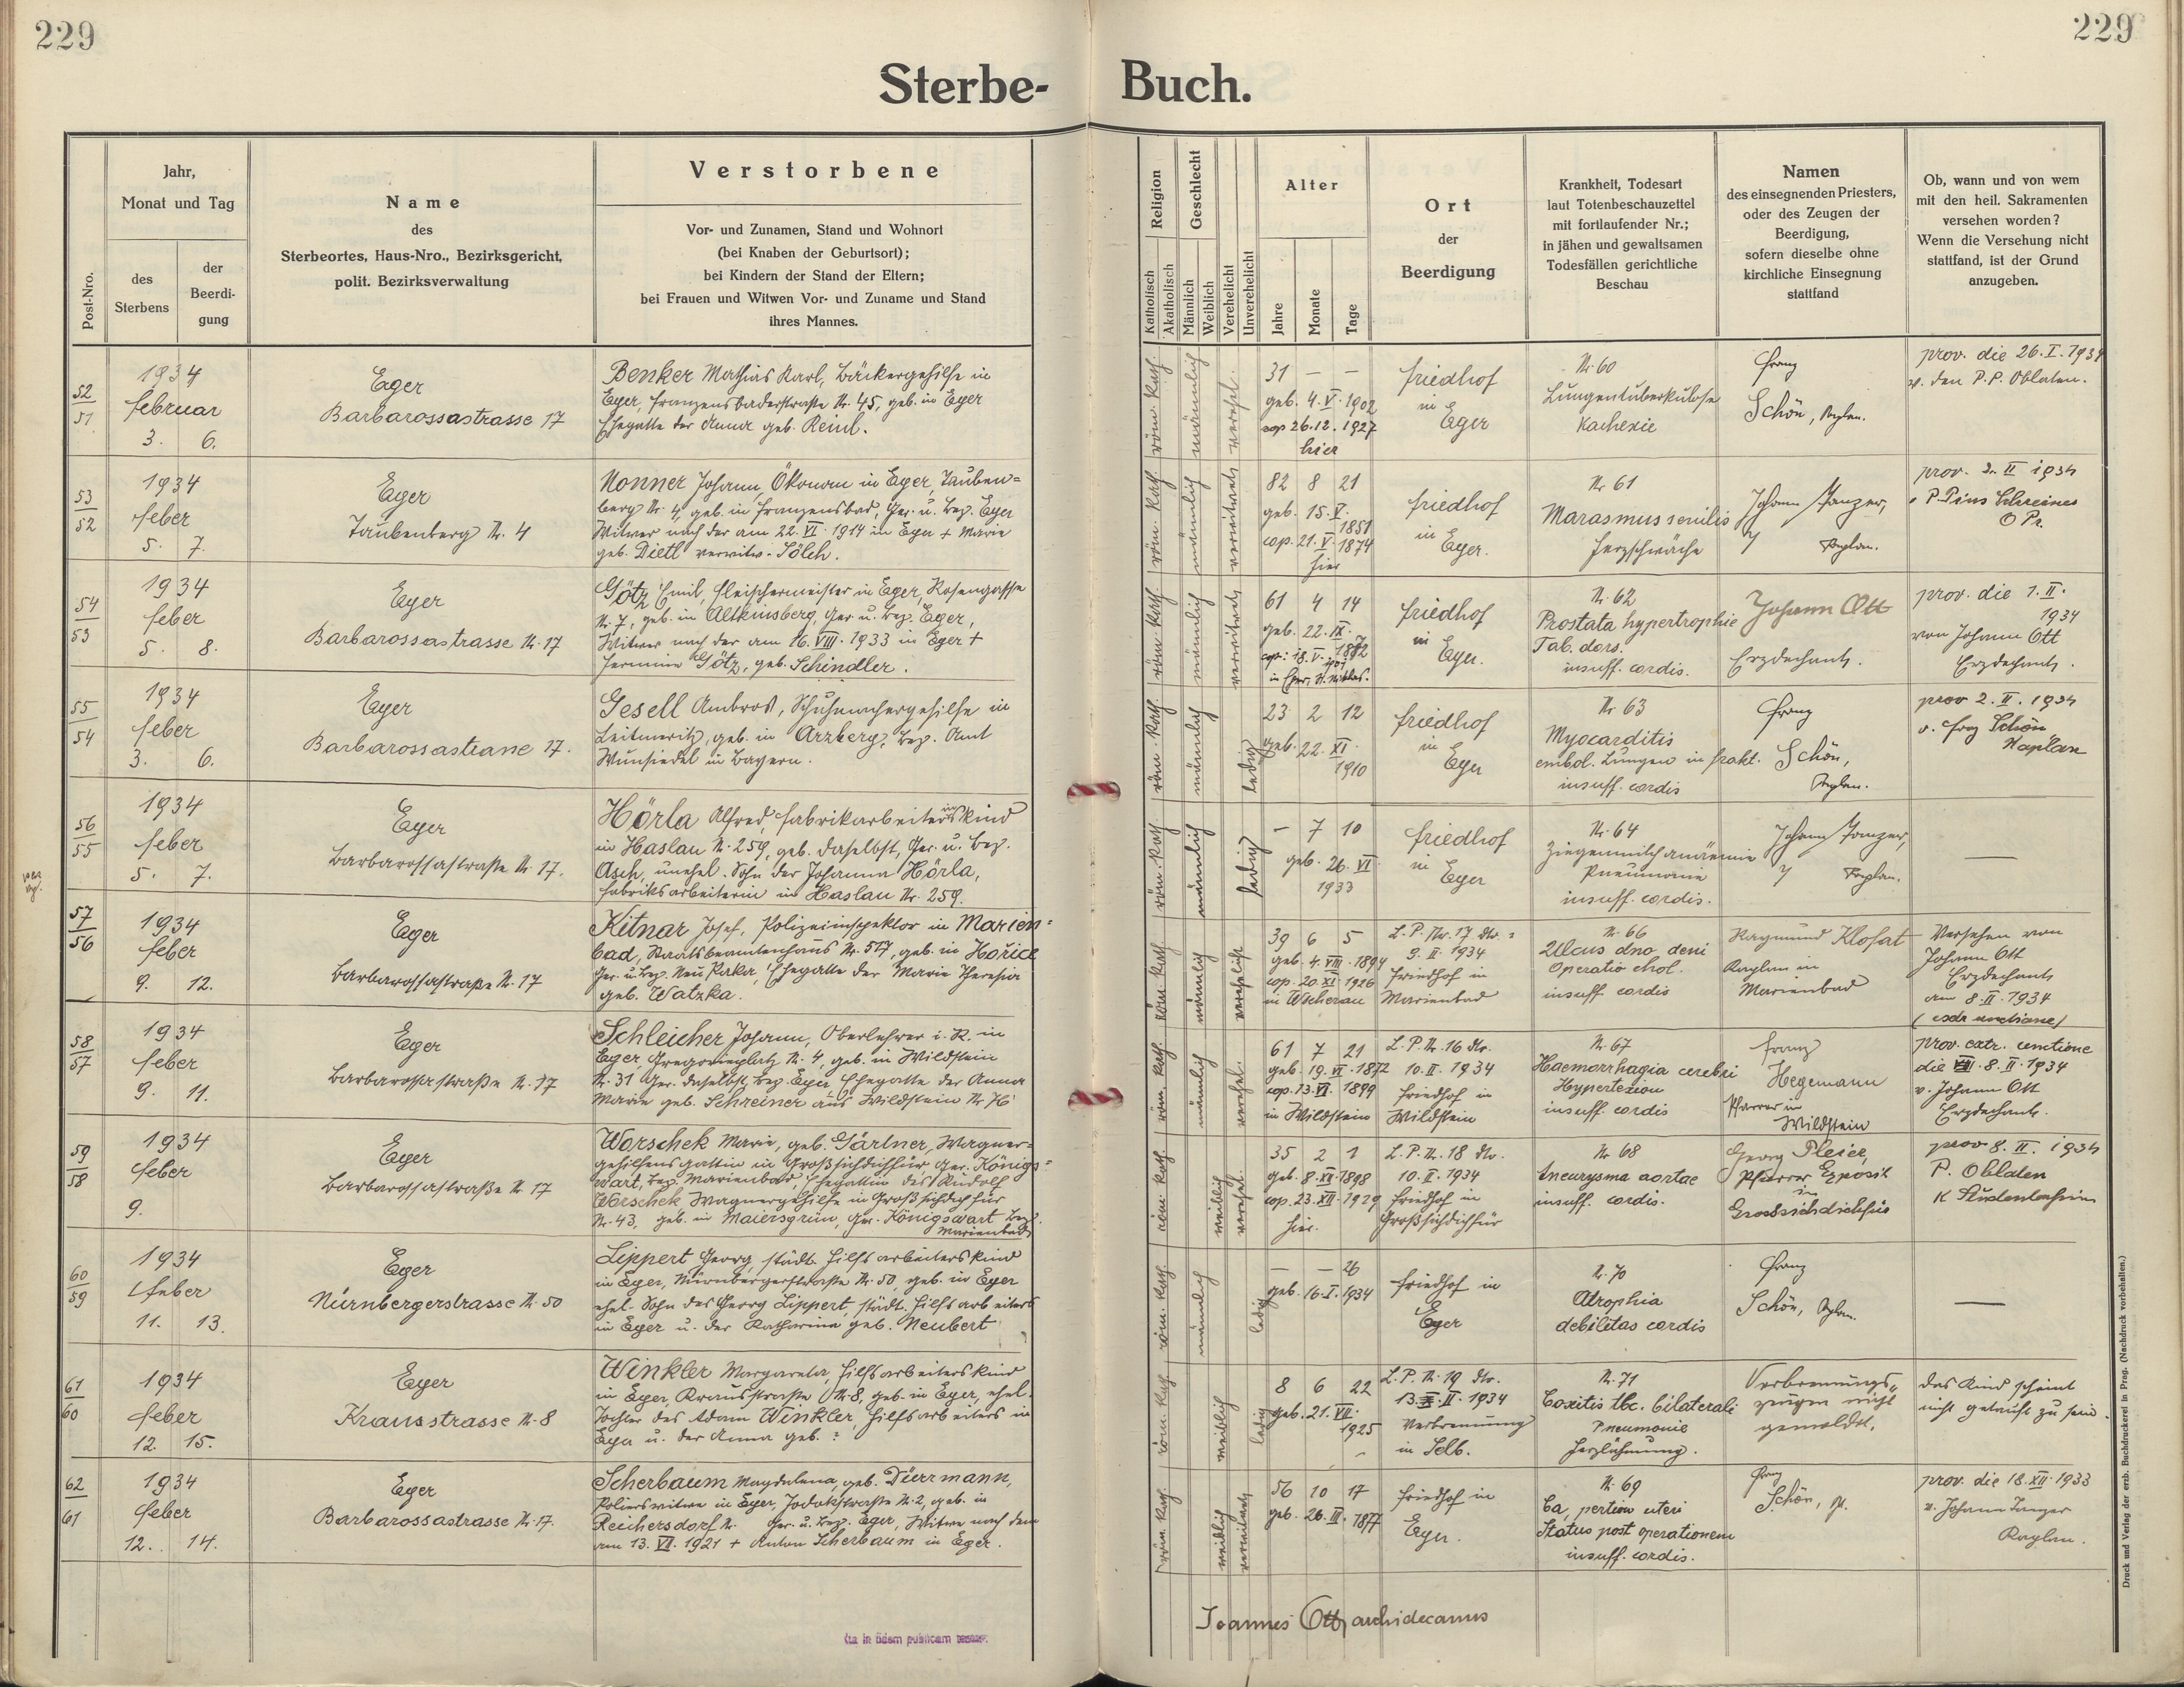 229
229
Sterbe-
Buch.
Post-Nro.
Jahr,
Monat und Tag
des
Sterbens
der
Beerdi-
gung
Name
des
Sterbeortes, Haus-Nro., Bezirksgericht,
polit. Bezirksverwaltung
Verstorbene
Vor- und Zunamen, Stand und Wohnort
(bei Knaben der Geburtsort);
bei Kindern der Stand der Eltern;
bei Frauen und Witwen Vor- und Zuname und Stand
ihres Mannes.
Religion
Katholisch
Akatholisch
Geschlecht
Männlich
Weiblich
Verehelicht
Unverehelicht
Alter
Jahre
Monate
Tage
Ort
der
Beerdigung
Krankheit, Todesart
laut Totenbeschauzettel
mit fortlaufender Nr.;
in jähen und gewaltsamen
Todesfällen gerichtliche
Beschau
Namen
des einsegnenden Priesters,
oder des Zeugen der
Beerdigung,
sofern dieselbe ohne
kirchliche Einsegnung
stattfand
Ob, wann und von wem
mit den heil. Sakramenten
versehen worden?
Wenn die Versehung nicht
stattfand, ist der Grund
anzugeben.
52
51
1934
Februar
3. 6.
Eger
Barbarossastrasse 17
Benker Mathias Karl, Bäckergehilfe in
Eger, Franzensbaderstraße Nr. 45, geb. in Eger
Ehegatte der Anna geb. Reinl.
röm. kath.
männlich
verehel.
31 — —
geb. 4. V. 1902
cop 26.12. 1927
hier
Friedhof
in
Eger
Nr. 60
Lungentuberkulose
Kachexie
Franz
Schön, Kaplan.
prov. die 26. I. 1934
v. den P.P. Oblaten.
53
52
1934
Feber
5. 7.
Eger
Taubenberg Nr. 4
Nonner Johann, Ökonom in Eger, Tauben=
berg Nr. 4, geb. in Franzensbad, Ger. u. Bez. Eger
Witwer nach der am 22. VI. 1914 in Eger + Marie
geb. Dietl verwitw. Sölch.
röm. kath.
männlich
verwitwet
82 8 21
geb. 15. V.
1851
cop. 21. V. 1874
hier
Friedhof
in
Eger.
Nr 61
Marasmus senilis
Herzschwäche
Johann Tanzer,
Kaplan.
prov. 2. II 1934
P. Pius Schreiner
O Pr.
54
53
1934
Feber
5. 8.
Eger
Barbarossastrasse Nr. 17
Götz Emil, Fleischermeister in Eger, Rosengasse
Nr. 7, geb. in Altkinsberg, Ger u. Bez. Eger,
Witwer nach der am 16. VIII. 1933 in Eger +
Hermine Götz, geb. Schindler.
röm. kath.
männlich
verwitwet
61 4 14
geb. 22. IX.
1872
cop: 18. V.
in Eger, St. Niklas.
Friedhof
in
Eger.
Nr. 62
Prostata hypertrophie
Tab. dors.
insuff. cordis.
Johann Ott
Erzdechant.
prov. die 1. II.
1934
von Johann Ott
Erzdechant.
55
54
1934
Feber
3. 6.
Eger
Barbarossastrasse 17.
Gesell Ambros, Schuhmachergehilfe in
Leitmeritz, geb. in Arzberg, Bez. Amt
Wunsiedel in Bayern.
röm. kath.
männlich
ledig
23 2 12
geb. 22. XI.
1910
Friedhof
in
Eger
Nr 63
Myocarditis
embol. Lungen in frakt.
insuff. cordis
Franz
Schön,
Kaplan.
prov 2. II. 1934
v. Frz Schön,
Kaplan
56
55
1934
Feber
5. 7.
Eger
Barbarossastraße Nr. 17.
Hörla Alfred, Fabrikarbeiterinskind
in Haslau Nr. 259, geb. daselbst, Ger. u. Bez.
Asch, unehel. Sohn der Johanna Hörla,
Fabriksarbeiterin in Haslau Nr. 259.
röm. kath.
männlich
ledig
— 7 10
geb. 26. VI
1933
Friedhof
in
Eger
Nr. 64
Ziegenmilchanämie
Pneumonie
insuff. cordis.
Johann Tanzer,
Kaplan.
—
57
56
1934
Feber
9. 12.
Eger
Barbarossastraße Nr. 17
Kitnar Josef, Polizeiinspektor in Marien=
bad, Staatsbeamtenhaus Nr. 517, geb. in Hořice
Ger. u. Bez. Neu Paka, Ehegatte der Marie Theresia
geb. Watzka.
röm. kath.
männlich
verehelicht
39 6 5
geb. 4. VIII. 1894
cop. 20. XI. 1926
in Wscherau
L. P. Nr. 17 dto.
9. II. 1934
Friedhof in
Marienbad
Nr. 66
Ulcus dno deni
Operatio chol.
insuff. cordis
Raymund Klofat
Kaplan in
Marienbad
Versehen von
Johann Ott
Erzdechant
am 8. II. 1934
58
57
1934
Feber
9. 11.
Eger
Barbarossastraße Nr. 17
Schleicher Johann, Oberlehrer i. R. in
Eger, Gregoriniplatz Nr. 4, geb. in Wildstein
Nr. 31 Ger. daselbst, Bez. Eger, Ehegatte der Anna
Marie geb. Schreiner aus Wildstein Nr 76
röm. kath.
männlich
verehel.
61 7 21
geb. 19. VI. 1872
cop. 13. VI. 1899
in Wildstein
L. P. Nr. 16 dto.
10. II. 1934
Friedhof in
Wildstein
Nr. 67
Haemorrhagia cerebri
Hypertexion
insuff. cordis
Franz
Hegemann
Pfarrer in
Wildstein
prov. extr. unctione
die 8. II. 1934
v. Johann Ott
Erzdechant.
59
58
1934
Feber
9.
Eger
Barbarossastraße Nr 17
Worschek Marie, geb. Gärtner, Wagner=
gehilfensgattin in Großsichdichfür, Ger. Königs=
wart, Bez. Marienbad, Ehegattin des Rudolf
Worschek Wagnergehilfe in Großsichdichfür
Nr. 43, geb. in Maiersgrün, Ger. Königswart Bez.
Marienbad
röm. kath.
weiblich
verehel.
35 2 1
geb. 8. XII. 1898
cop. 23. XII. 1929
hier.
L. P. Nr. 18 dto.
10. II. 1934
Friedhof in
Großsichdichfür
Nr 68
Aneurysma aortae
insuff. cordis.
Georg Pleier,
Pfarrer Exposit
in
Grosssichdichfür
prov 8. II. 1934
P. Oblaten
60
59
1934
Feber
11. 13.
Eger
Nürnbergerstrasse Nr. 50
Lippert Georg, städt. Hilfsarbeiterskind
in Eger, Nürnbergerstraße Nr. 50, geb. in Eger
ehel. Sohn des Georg Lippert, städt. Hilfsarbeiters
in Eger u. der Katharina geb. Neubert
röm. kath.
männlich
ledig
— — 26
geb. 16. I. 1934
Friedhof in
Eger
Nr. 70
Atrophia
debilitas cordis
Franz
Schön, Kaplan.
—
61
60
1934
Feber
12. 15.
Eger
Krausstrasse Nr. 8
Winkler Margareta, Hilfsarbeiterskind
in Eger, Krausstraße Nr 8, geb. in Eger, ehel.
Tochter des Adam Winkler, Hilfsarbeiters in
Eger u. der Anna geb. ?
röm. kath.
weiblich
ledig
8 6 22
geb. 21. VII.
1925
L. P. Nr. 19 dto.
13. II. 1934
Verbrennung
in Selb.
Nr. 71
Coxitis tbc. bilaterali
Pneumonie
Herzlähmung.
Verbrennungs-
zeugen nicht
gemeldet.
das Kind scheint
nicht getauft zu sein.
62
61
1934
Feber
12. 14.
Eger
Barbarossastrasse Nr. 17.
Scherbaum Magdalena, geb. Dürrmann,
Polierswitwe in Eger, Jodokstraße Nr. 2, geb. in
Reichersdorf Nr. Ger. u. Bez. Eger, Witwe nach dem
am 13. VI. 1921 + Anton Scherbaum in Eger.
röm. kath.
weiblich
verwitwet
56 10 17
geb. 26. III. 1877
Friedhof in
Eger.
Nr. 69
Ca, portion uteri
Status post operationem
insuff. cordis.
Franz
Schön,
prov. die 18. XII. 1933
v. Johann Tanzer
Kaplan.
Joannes Ott, archidecanus
Druck und Verlag der erzb. Buchdruckerei in Prag. (Nachdruck vorbehalten.)